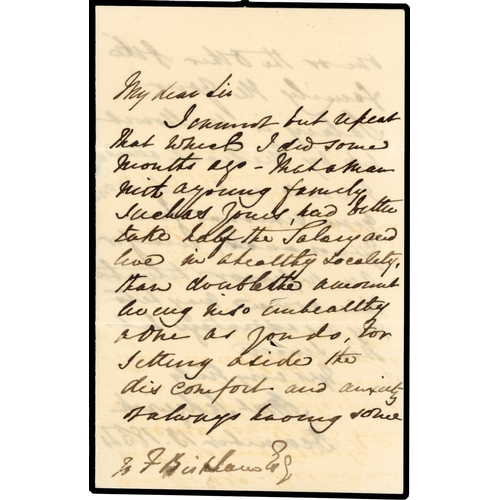 My dear Sir
I cannot but repeat
that which I did some
months ago - that a man
with a young family
such as yours, had better
take half the Salary and
live in a healthy locality,
than double the amount
living in so unhealthy
a one as
setting aside the
discomfort and anxiety
of always having some
to F Esq